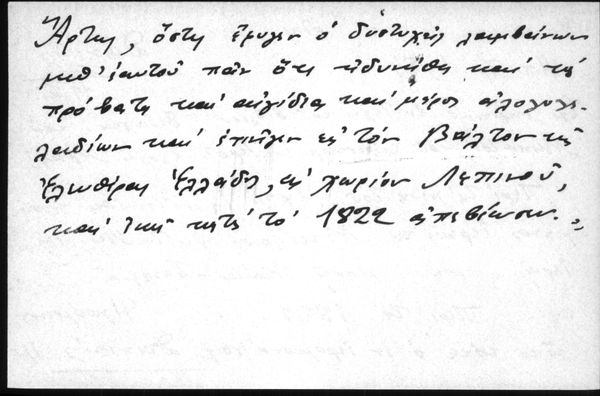 Ἄρτης, ὅστις ἔφυγεν ὁ δυστυχὴς λαμβάνων
μεθ' ἑαυτοῦ πᾶν ὅτι ἠδυνήθη καὶ τὰ
πρόβατα καὶ αἰγίδια καὶ μέρος
καὶ ἐπῆγεν εἰς τὸν Βάλτον τῆς
Ἐλευθέρας Ἑλλάδος, εἰς χωρίον Λεπενοῦ,
καὶ ἐκεῖ κατὰ τὸ 1822 ἀπεβίωσεν.»